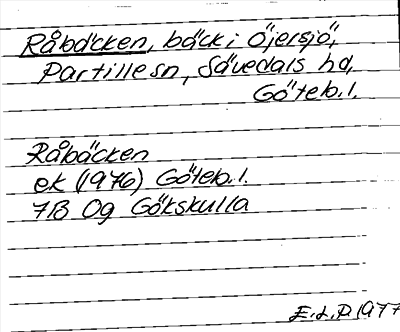 Råbäcken, bäck i Öjersjö,
Partille sn, Sävedals hd,
Göteb. l.
Råbäcken
ek (1976) Göteb. l.
7B Og Gökskulla
E.L.P. 1977